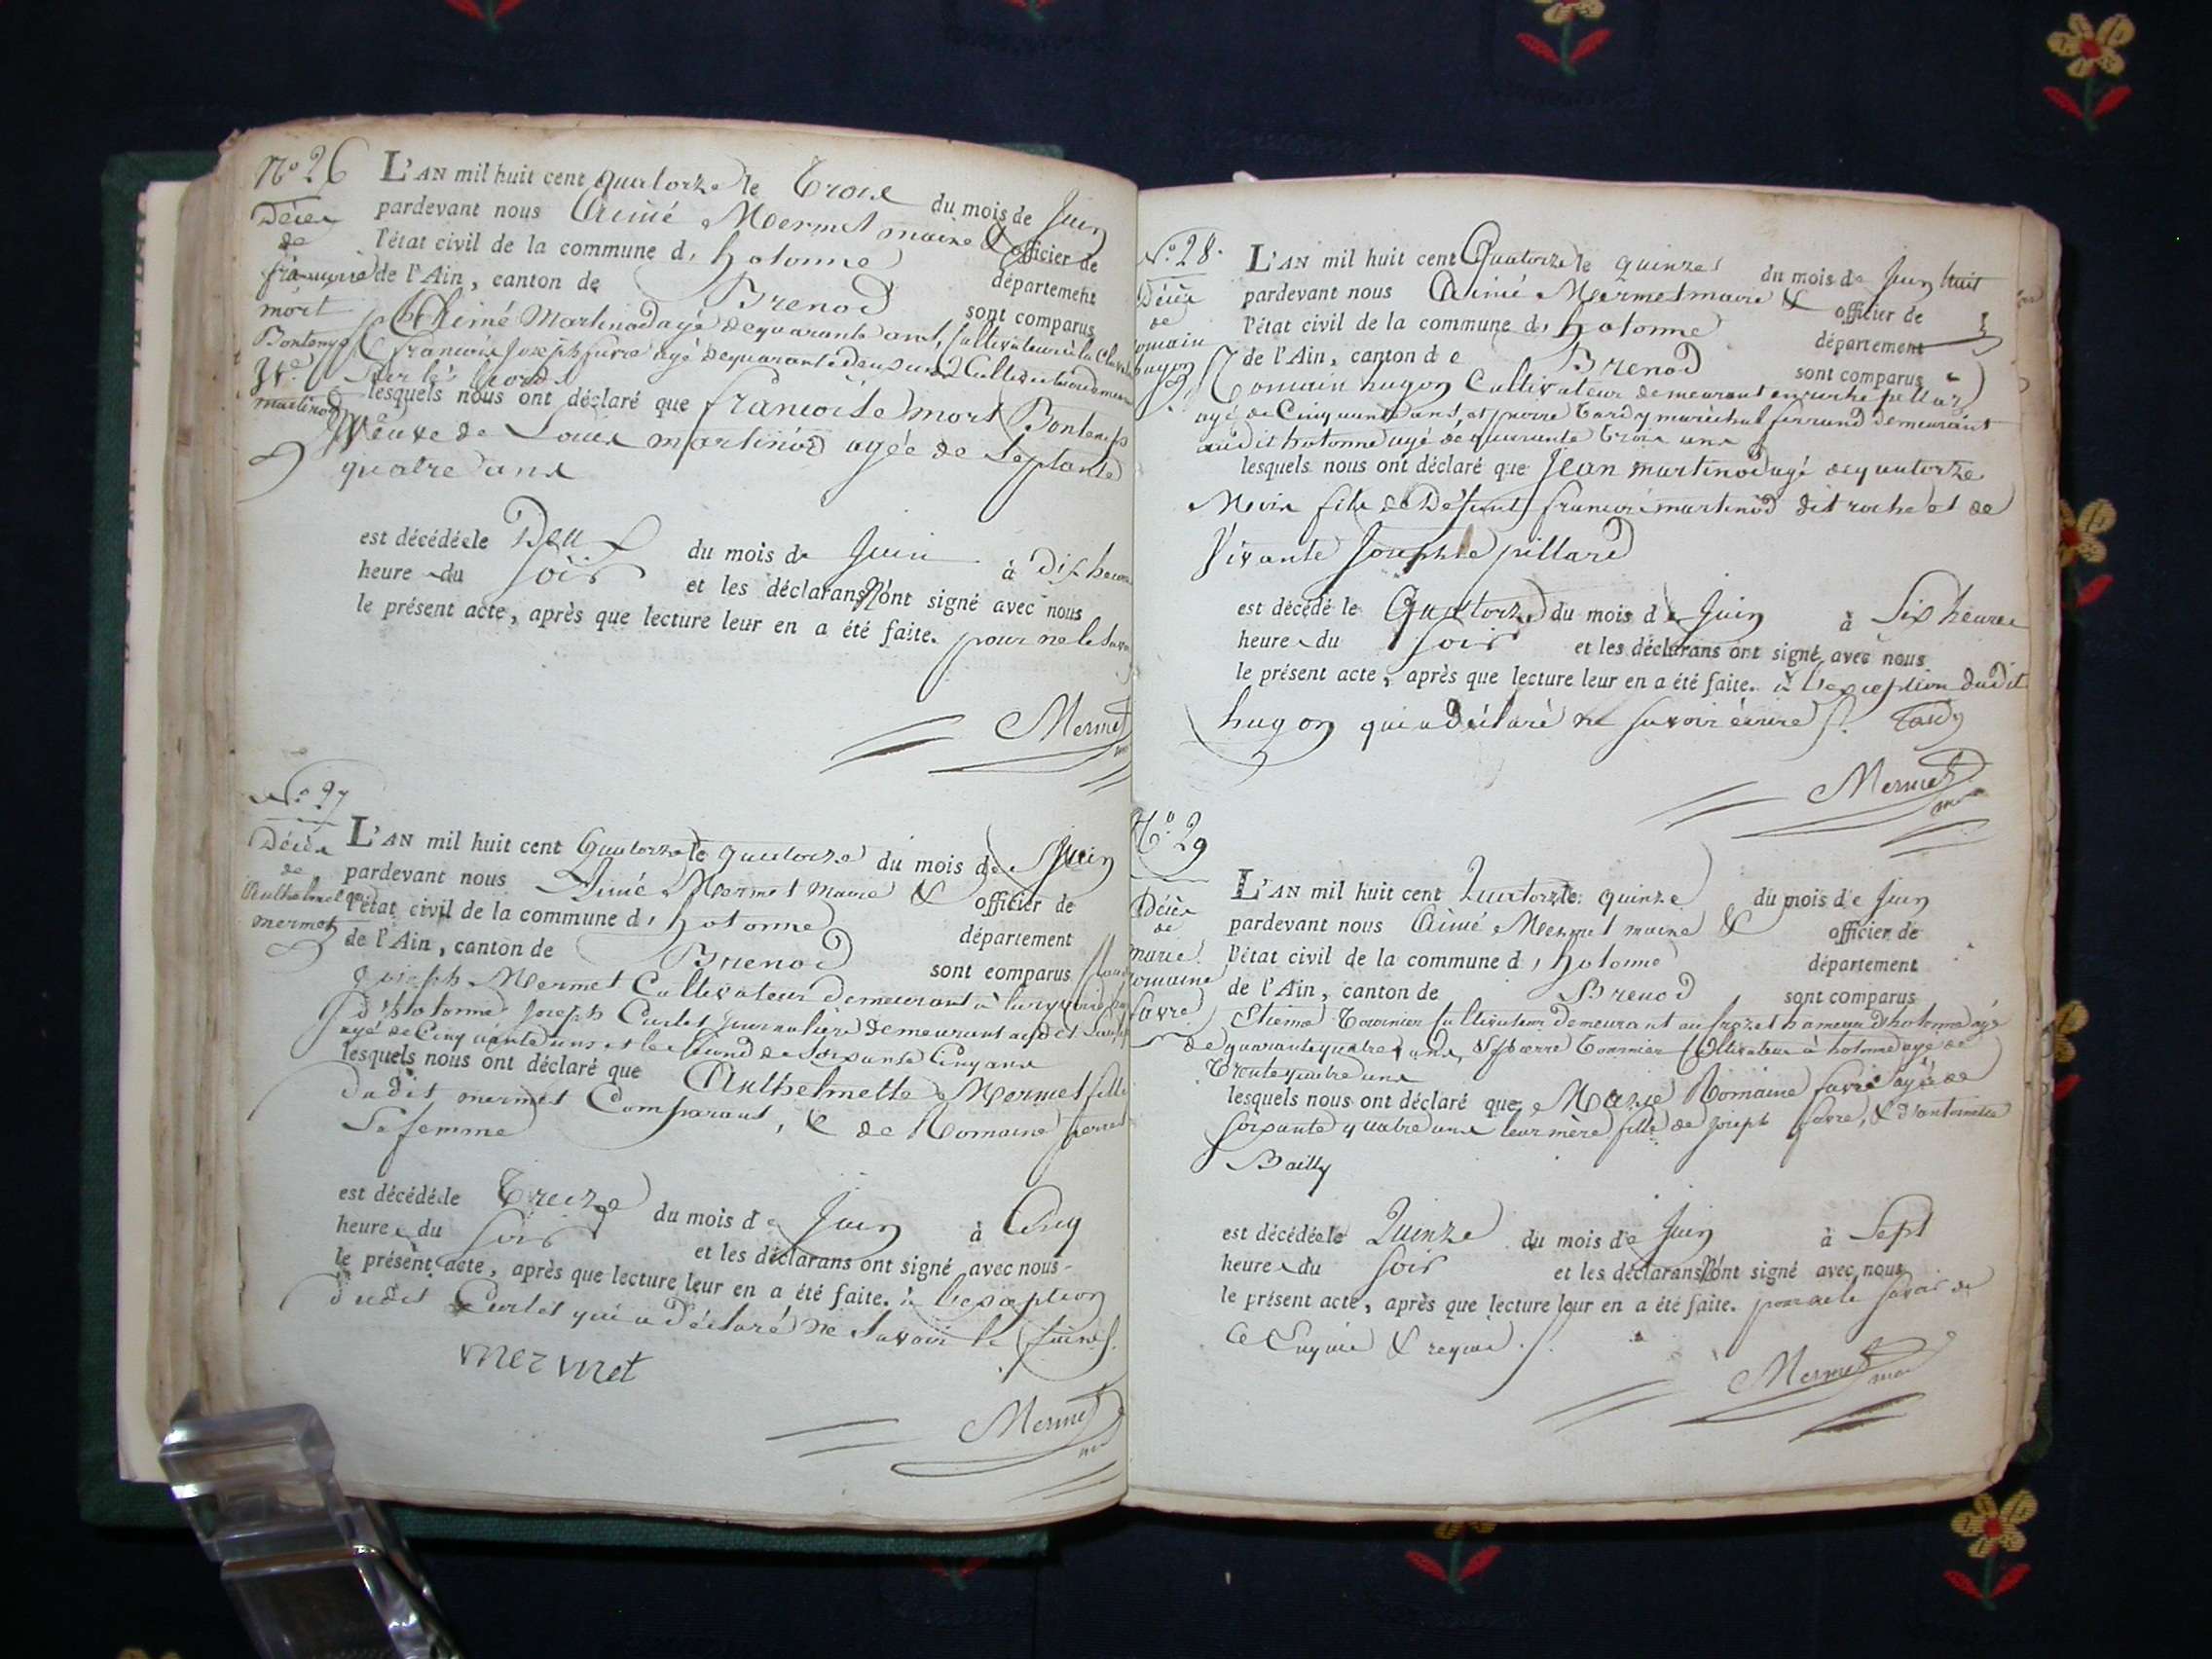 N° 26
Décès
de
françoise
mort
Bontemps
Ve
martinod
L'AN mil huit cent quatorze le Trois du mois de Juin
pardevant nous Aimé Mermet maire & officier de
l'état civil de la commune d'hotonne département
de l'Ain, canton de Brenod sont comparus
Aimé Martinod agé de quarante ans, Cultivateur à la
françois Joseph favre agé de quarante deux ans Cultivateur
lesquels nous ont déclaré que françoise mort Bontemps
Veuve de Louis martinod agée de Septante
quatre ans
est décédée le Deux du mois de Juin à Dix heures
heure du soir et les déclarans n'ont signé avec nous
le présent acte, après que lecture leur en a été faite. pour ne le
Mermet
N° 27
Décès
de
Anthelmette
mermet
L'AN mil huit cent Quatorze le quatorze du mois de Juin
pardevant nous Aimé Mermet Maire & officier de
l'état civil de la commune d'hotonne département
de l'Ain, canton de Brenod sont comparus
joseph Mermet Cultivateur demeurant à
d'hotonne Joseph Curlet Journalière demeurant audit
agé de Cinquante ans et le second de soixante Cinq ans
lesquels nous ont déclaré que Anthelmette Mermet fille
dudit mermet Comparant, & de Romaine
Sa femme
est décédée le Treize du mois de Juin à Cinq
heures du soir et les déclarans ont signé avec nous
le présent acte, après que lecture leur en a été faite. à l'exception
dudit Curlet qui a déclaré ne savoir le faire
mermet
Mermet
N° 28.
Décès
de
omain
hugon
L'AN mil huit cent Quatorze le quinze du mois de Juin
pardevant nous Aimé Mermet maire & officier de
l'état civil de la commune d'hotonne département
de l'Ain, canton de Brenod sont comparus
Romain hugon Cultivateur demeurant
agé de Cinquante ans, et pierre Tardy maréchal ferrand demeurant
audit hotonne agé de quarante trois ans
lesquels nous ont déclaré que Jean martinod agé de quatorze
Mois fils de Défunt françois martinod dit roche et de
Vivante Josephte pillard
est décédé le Quatorze du mois de Juin à Six heures
heure du soir et les déclarans ont signé avec nous
le présent acte, après que lecture leur en a été faite. à l'exception dudit
hugon qui a déclaré ne savoir écrire Tardy
Mermet
N° 29
Décès
de
marie
omaine
favre
L'AN mil huit cent Quatorze le quinze du mois de Juin
pardevant nous Aimé Mermet maire & officier de
l'état civil de la commune d'hotonne département
de l'Ain, canton de Brenod sont comparus
Etienne Tournier Cultivateur demeurant au hameau d'hotonne agé
de quarante quatre ans, & pierre Tournier Cultivateur à hotonne agé de
Trente quatre ans
lesquels nous ont déclaré que Marie Romaine favre agée de
soixante quatre ans leur mère fille de joseph favre, & d'antoinette
Bailly
est décédée le Quinze du mois de Juin à Sept
heure du soir et les déclarans n'ont signé avec nous
le présent acte, après que lecture leur en a été faite. pour ne le savoir de
ce Enquis & requis.
Mermet